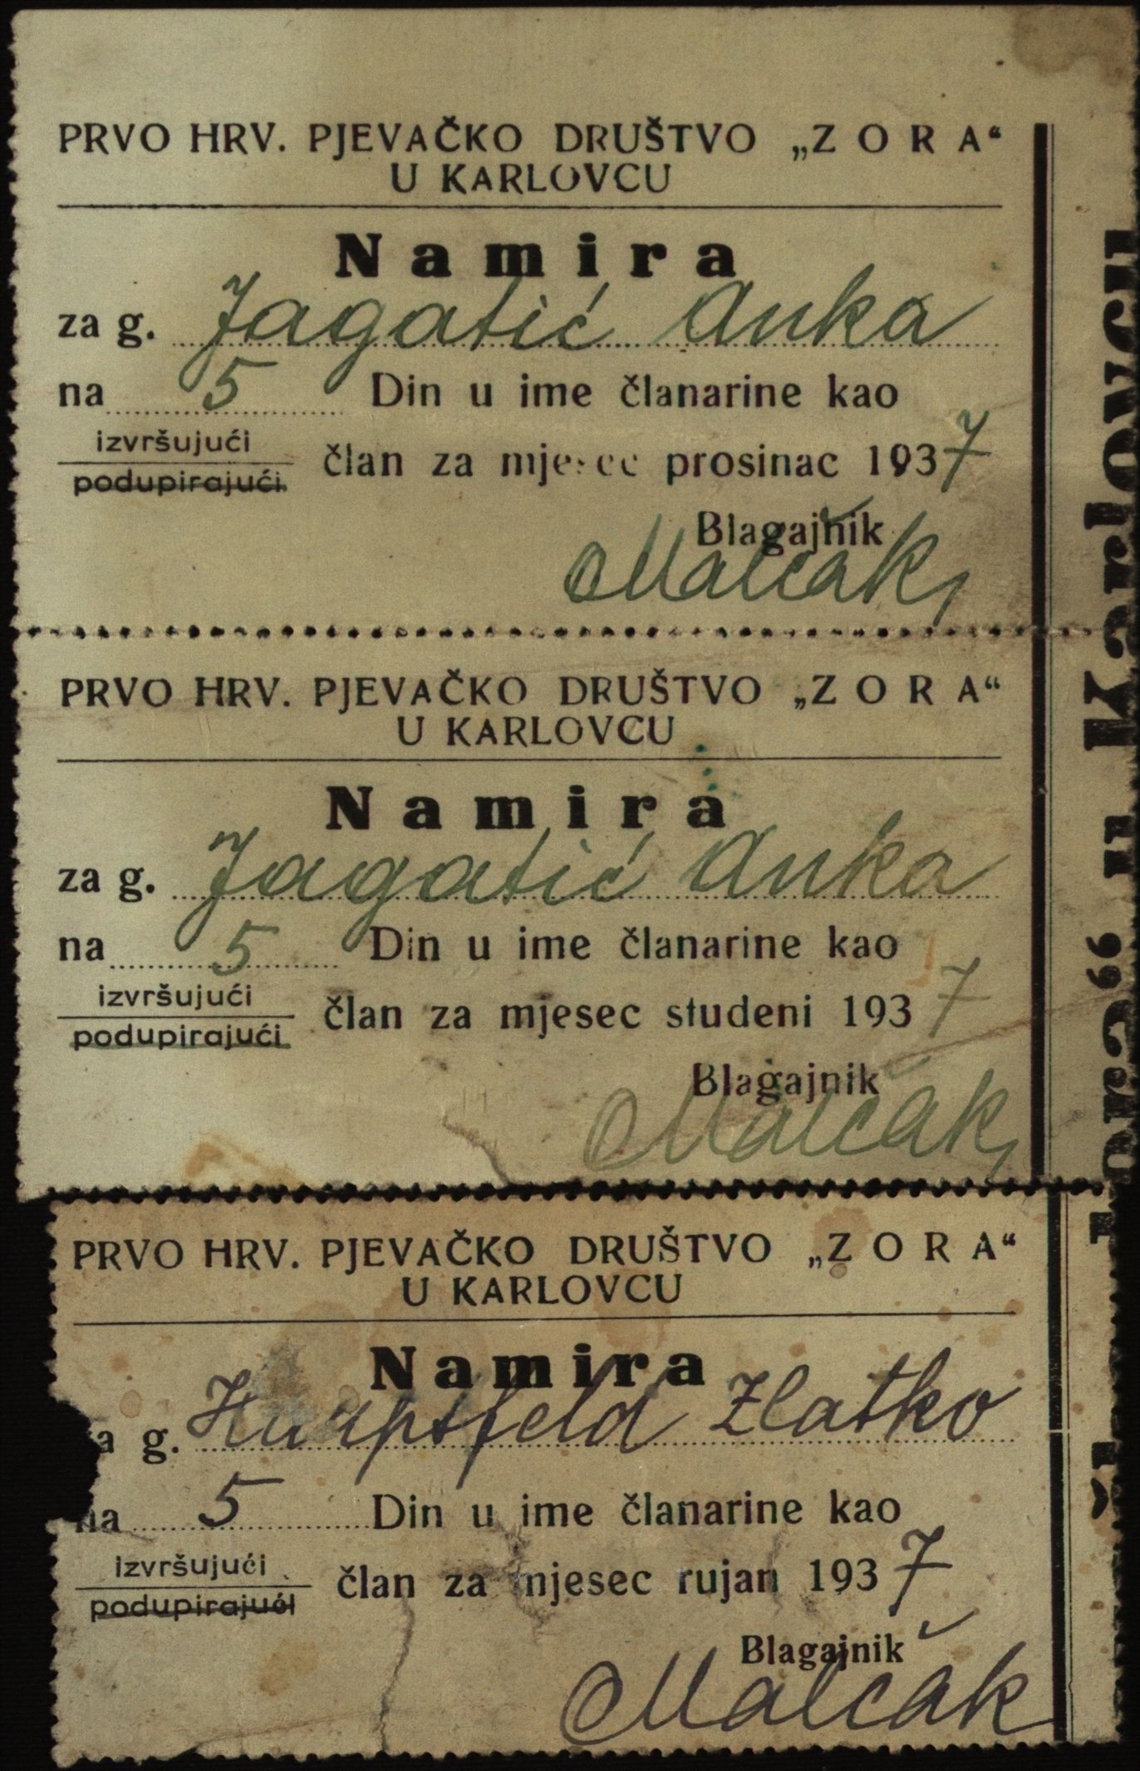 PRVO HRV. PJEVAČKO DRUŠTVO „Z O R A“
U KARLOVCU
Namira
za g. Jagatić Anka
na 5 Din u ime članarine kao
izvršujući
podupirajući
član za mjesec prosinac 1937
Blagajnik
Malčak
PRVO HRV. PJEVAČKO DRUŠTVO „Z O R A“
U KARLOVCU
Namira
za g. Jagatić Anka
na 5 Din u ime članarine kao
izvršujući
podupirajući
član za mjesec studeni 1937
Blagajnik
Malčak
PRVO HRV. PJEVAČKO DRUŠTVO „Z O R A“
U KARLOVCU
Namira
za g. Hauptfeld Zlatko
na 5 Din u ime članarine kao
izvršujući
podupirajući
član za mjesec rujan 1937
Blagajnik
Malčak
ora“ u Karlovcu